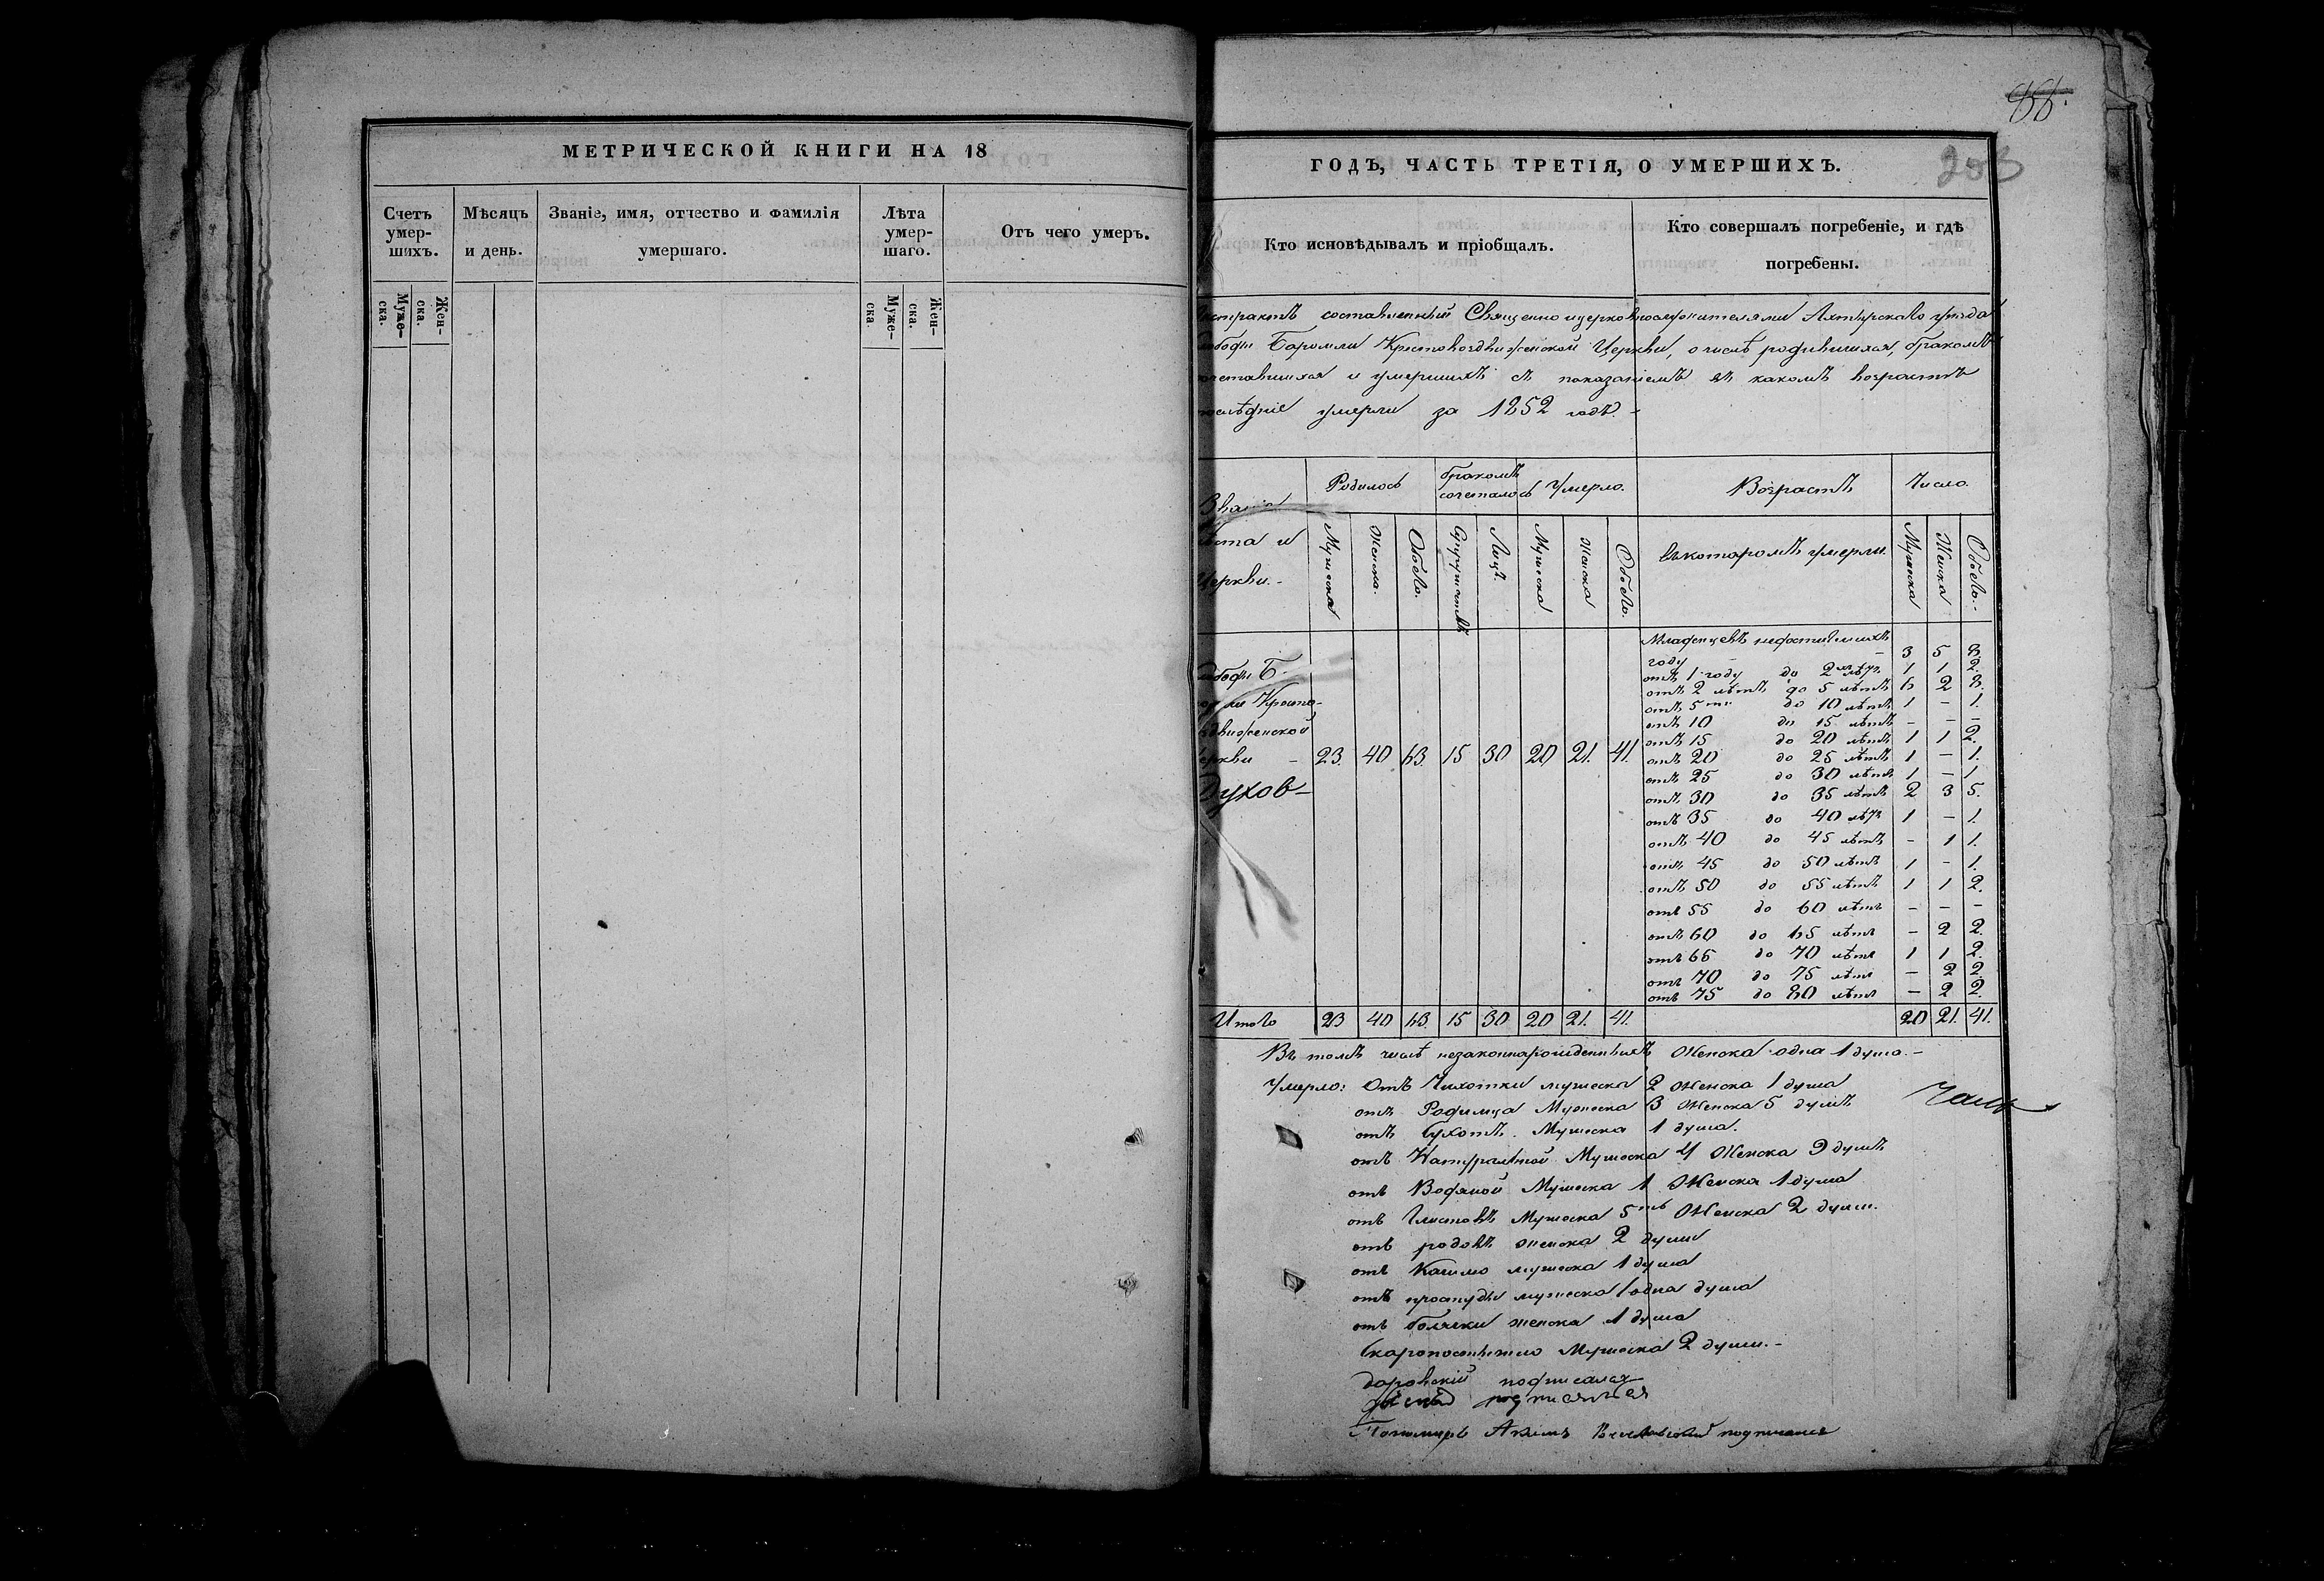 МЕТРИЧЕСКОЙ КНИГИ НА 18
Счетъ умер- шихъ.
Мѣсяцъ и день.
Званіе, имя, отчество и фамилія умершаго.
Лѣта умер- шаго.
Отъ чего умеръ.
Муже- ска.
Жен- ска.
Муже- ска.
Жен- ска.
203
ГОДЪ, ЧАСТЬ ТРЕТІЯ, О УМЕРШИХЪ.
Кто исповѣдывалъ и пріобщалъ.
Кто совершалъ погребеніе, и гдѣ погребены.
составленный Священноцерковнослужителями Ахтырскаго уѣзда
Боромли Крестовоздвиженской Церкви, о числѣ родившихся, бракомъ
и умершихъ съ показаніемъ въ какомъ возрастѣ
умерли за 1852 годъ.-
Родилось
бракомъ сочеталось
Умерло.
Возрастъ
Число.
и
Церкви.-
Мужеска
Женска.
Обоего.
Супружествъ
Лицъ.
Мужеска
Женска
Обоего.
въ которомъ умерли.
Мужеска
Женска
Обоего.-
Младенцевъ недостигшихъ
году - 3 5 8.
отъ 1 году до 2 лѣтъ 1 1 2.
отъ 2 лѣтъ до 5 лѣтъ 6 2 8.
отъ 5ти до 10 лѣтъ 1 - 1.
отъ 10 до 15 лѣтъ - - -
отъ 15 до 20 лѣтъ 1 1 2.
отъ 20 до 25 лѣтъ 1 - 1.
отъ 25 до 30 лѣтъ 1 - 1
отъ 30 до 35 лѣтъ 2 3 5.
отъ 35 до 40 лѣтъ 1 - 1.
отъ 40 до 45 лѣтъ - 1 1.
отъ 45 до 50 лѣтъ 1 - 1.
отъ 50 до 55 лѣтъ 1 1 2.
отъ 55 до 60 лѣтъ - - -
отъ 60 до 65 лѣтъ - 2 2.
отъ 65 до 70 лѣтъ 1 1 2.
отъ 70 до 75 лѣтъ - 2 2.
отъ 75 до 80 лѣтъ - 2 2.
Б-
Кресто-
движенской
23. 40 63. 15 30 20 21. 41.
Духов-
Итого 23 40 63. 15 30 20 21. 41. 20 21. 41.
Въ томъ числѣ незаконнорожденныхъ Женска одна 1 душа.-
Умерло: Отъ Чихотки мужеска 2 женска 1 душа
отъ Родимца Мужеска 3 женска 5 душъ
отъ Сухотъ. Мужеска 1 душа.
отъ Натуральной Мужеска 4 Женска 9 душъ
отъ Водяной Мужеска 1 Женска 1 душа
отъ Глистовъ Мужеска 5ть Женска 2 души.
отъ родовъ женска 2 души
отъ мужеска 1 душа
отъ простуды мужеска 1 одна душа
отъ болячки женска 1 душа
Скоропостижно Мужеска 2 души.-
подписался
подписался
Пономарь Акимъ подписался